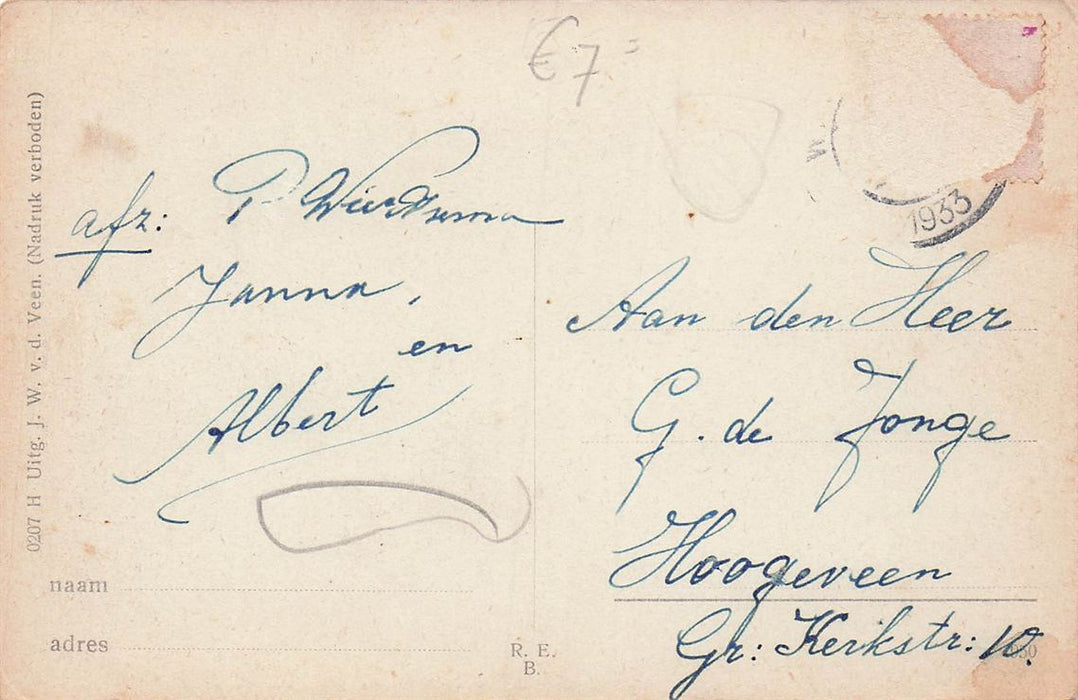 €7=
1933
afz: P Wiersuma
Janna,
en
Albert
Aan den Heer
G. de Jonge
Hoogeveen
Gr: Kerkstr: 10.
naam
adres
R. E.
B.
0207 H Uitg. J. W. v. d. Veen. (Nadruk verboden)